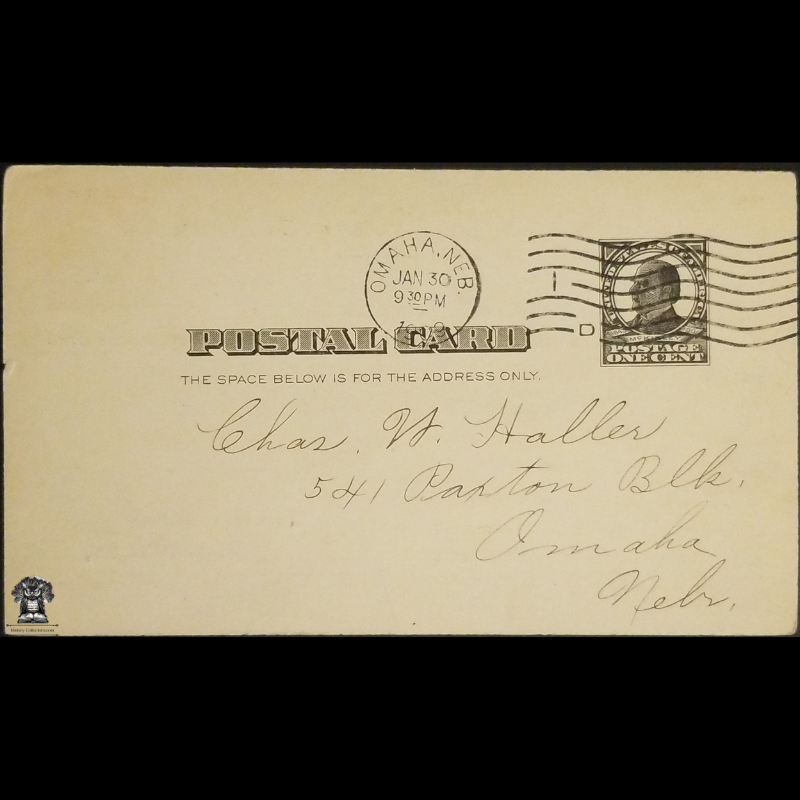 OMAHA, NEB.
JAN 30
9 30 PM
D
UNITED STATES OF AMERICA
McKINLEY
POSTAGE
ONE CENT
POSTAL CARD
THE SPACE BELOW IS FOR THE ADDRESS ONLY.
Chas. W. Haller
541 Paxton Blk.
Omaha
Nebr.